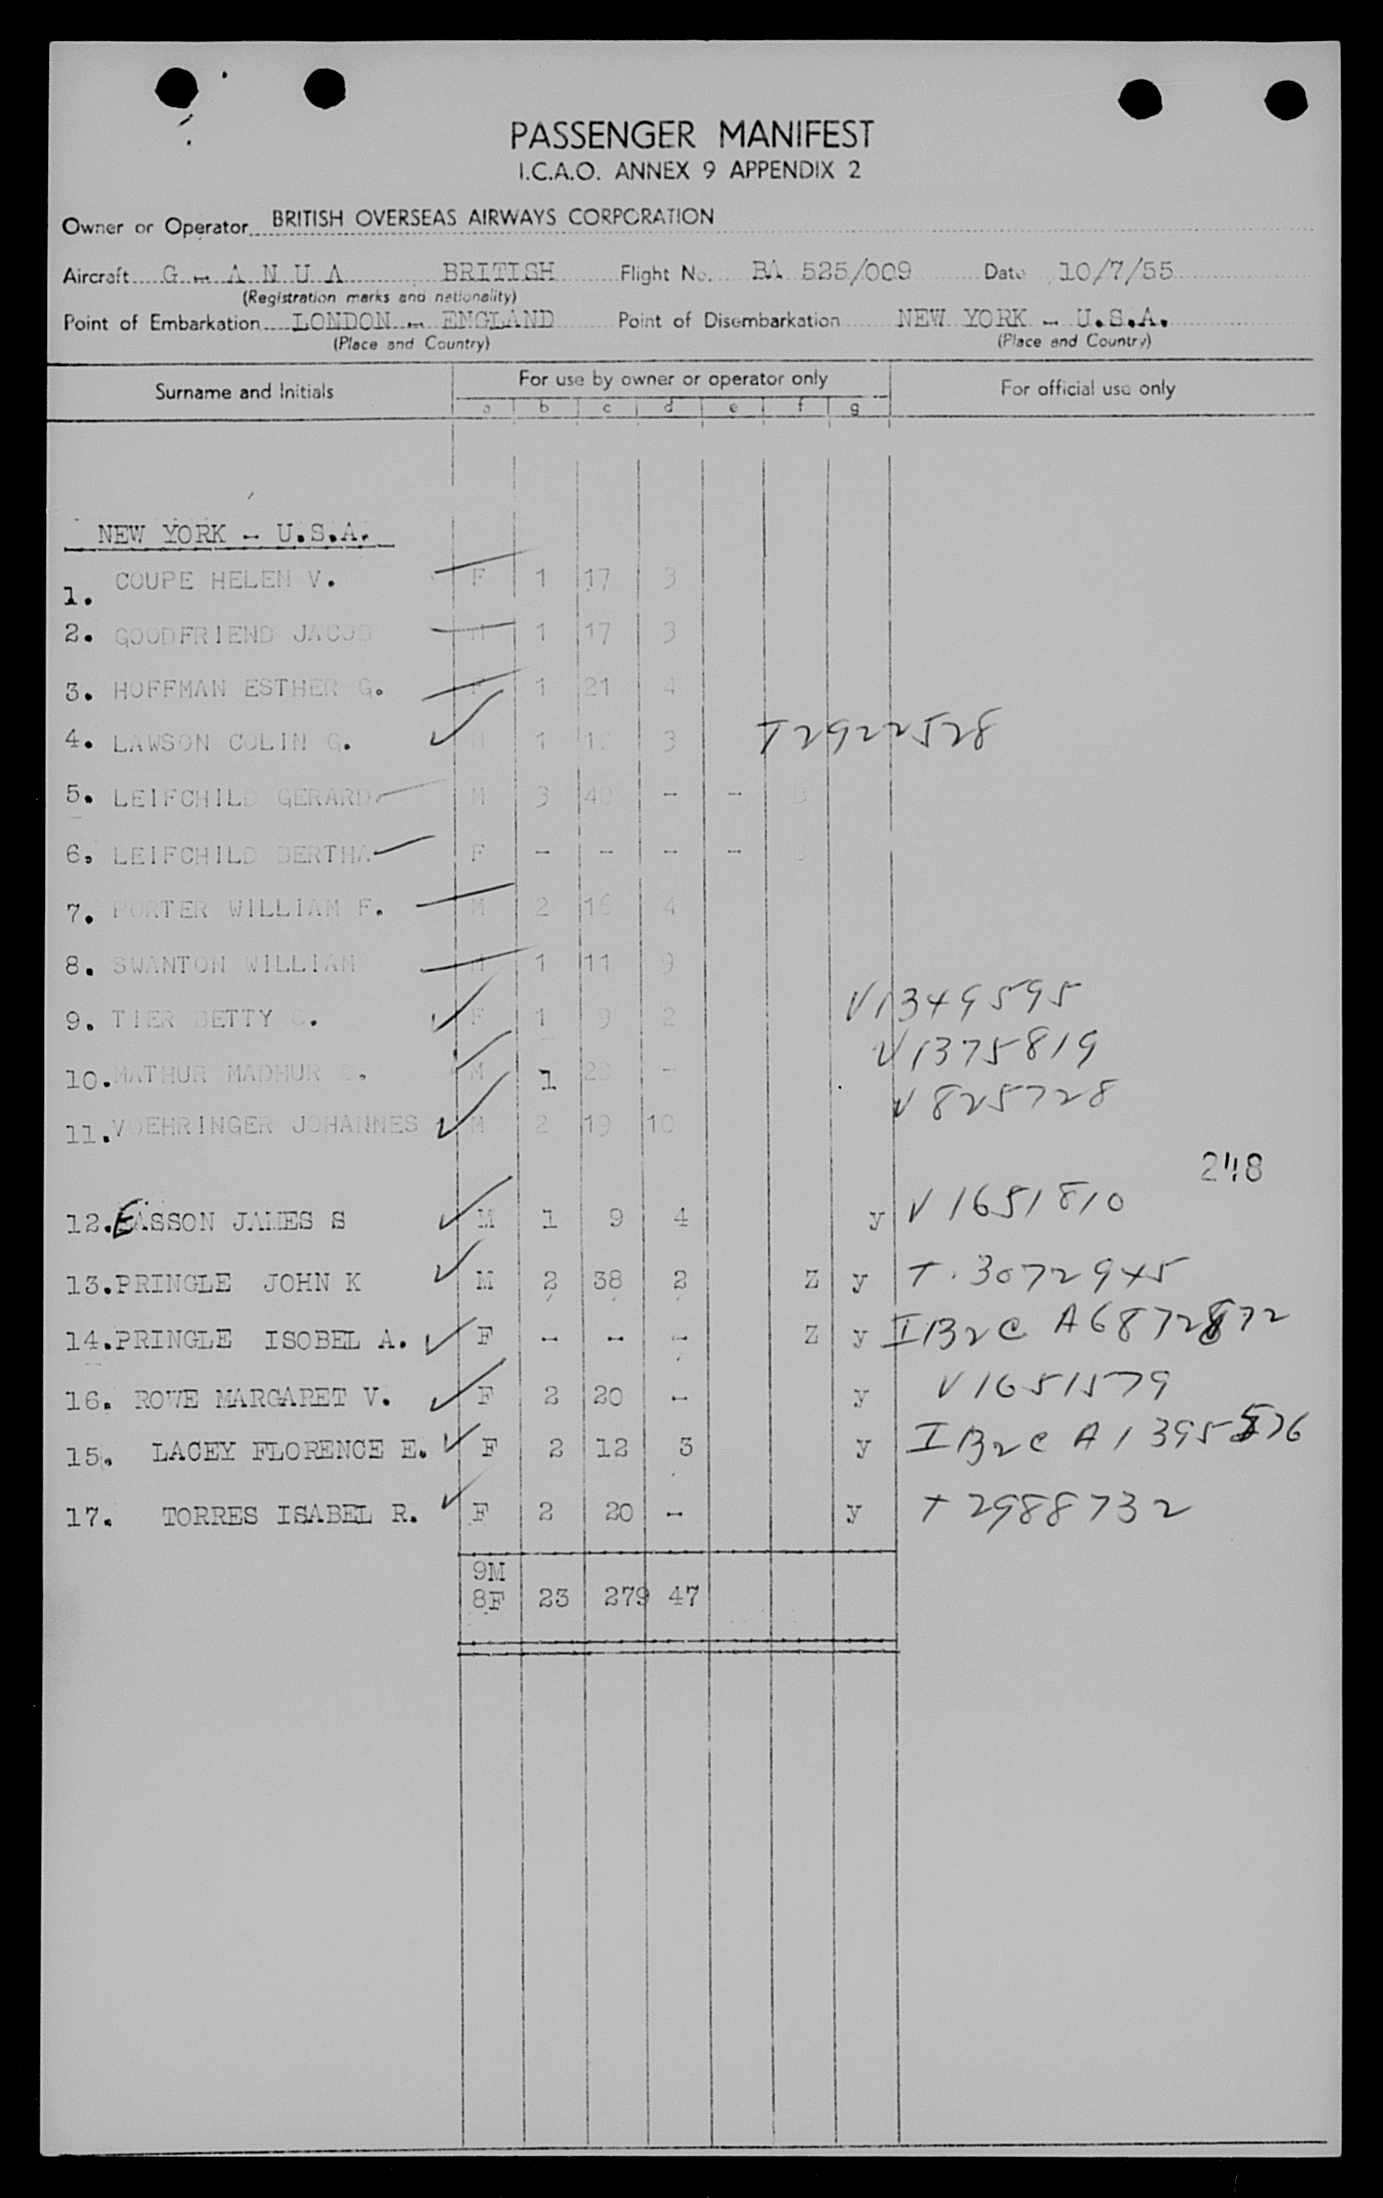 PASSENGER MANIFEST
I.C.A.O. ANNEX 9 APPENDIX 2
Owner or Operator BRITISH OVERSEAS AIRWAYS CORPORATION
Aircraft G - A N U A BRITISH Flight No. BA 525/009 Date 10/7/55
(Registration marks and nationality)
Point of Embarkation LONDON - ENGLAND Point of Disembarkation NEW YORK - U.S.A.
(Place and Country) (Place and Country)
Surname and Initials For use by owner or operator only For official use only
a b c d e f g
NEW YORK - U.S.A.
1. COUPE HELEN V. F 1 17 3
2. GOODFRIEND JACOB M 1 17 3
3. HOFFMAN ESTHER G. F 1 21 4
4. LAWSON COLIN G. M 1 3 T2922528
5. LEIFCHILD GERARD M 3 40 - -
6. LEIFCHILD BERTHA F - - - -
7. PORTER WILLIAM F. M 2 16 4
8. SWANTON WILLIAM M 1 11 9
9. TIER BETTY F 1 9 2 V1349595
10. MATHUR MADHUR M 1 - V1375819
11. VOEHRINGER JOHANNES M 2 19 10 V825728
12. EASSON JAMES S M 1 9 4 y V1651810
13. PRINGLE JOHN K M 2 38 2 Z y T. 3072945
14. PRINGLE ISOBEL A. F - - - Z y
16. ROWE MARGARET V. F 2 20 - y V1651579
15. LACEY FLORENCE E. F 2 12 3 y
17. TORRES ISABEL R. F 2 20 - y T2988732
9M
8F 23 279 47